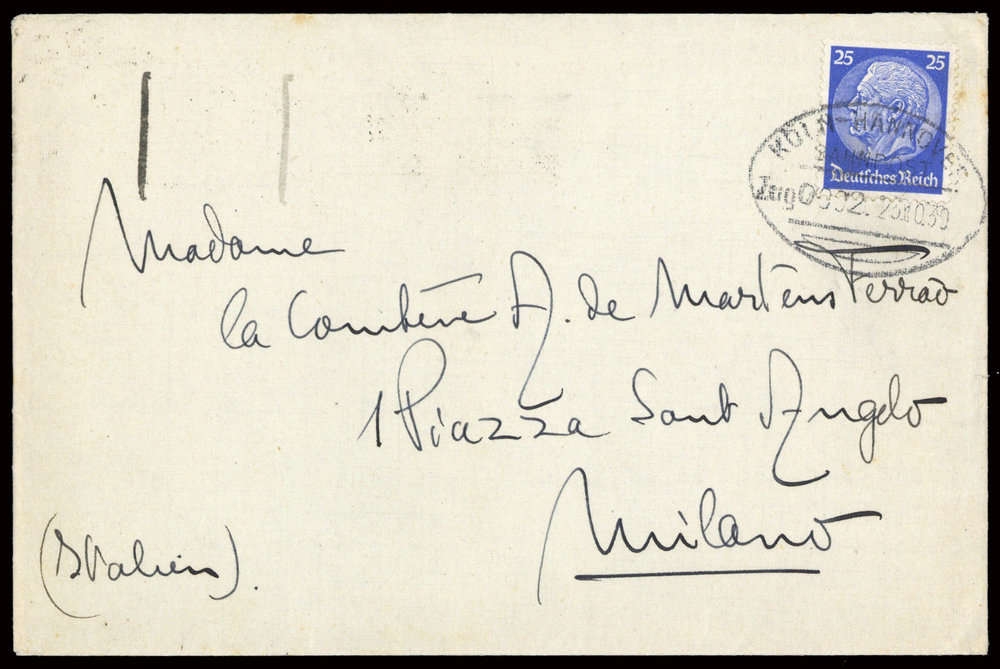 25 25
Deutsches Reich
KÖLN-HANNOVER
BAHNPOST
Zug 0992. 23.10.39
Madame
la Comtesse A. de Martens Ferrao
1 Piazza Sant Angelo
Milano
(Italien).